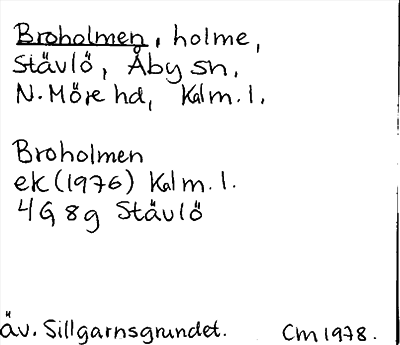 Broholmen, holme,
Stävlö, Åby sn.
N. Möre hd, Kalm. l.
Broholmen
ek (1976) Kalm. l.
4G 8g Stävlö
äv. Sillgarnsgrundet. CM 1978.